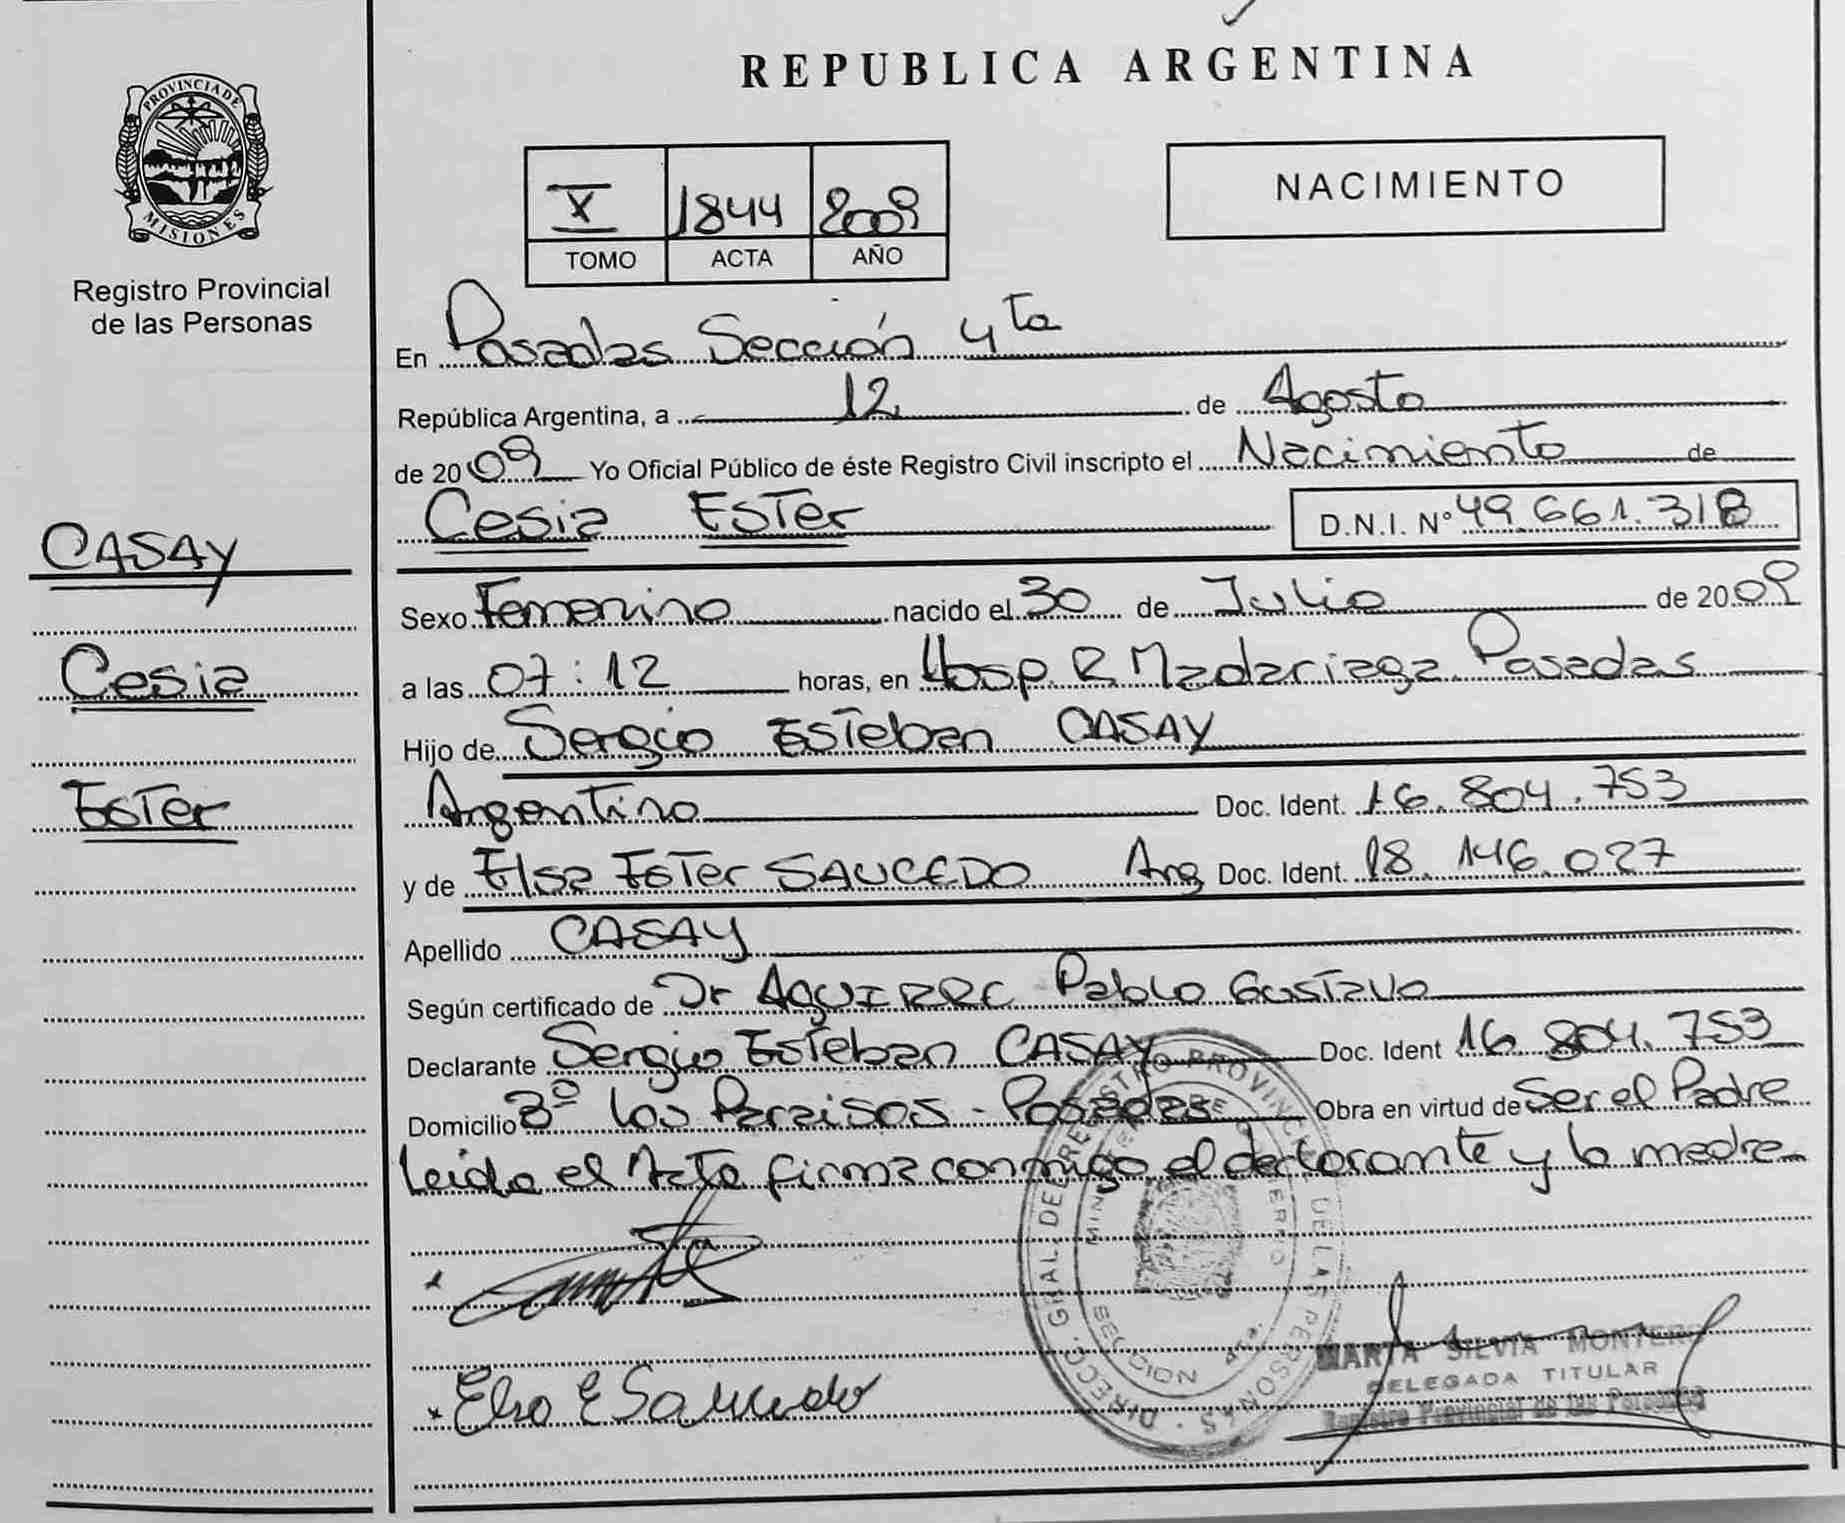 REPUBLICA ARGENTINA
PROVINCIA DE MISIONES
Registro Provincial
de las Personas
X 1844 2009
TOMO ACTA AÑO
NACIMIENTO
En Posadas Sección 4ta
República Argentina, a 12 de Agosto
de 2009 Yo Oficial Público de éste Registro Civil inscripto el Nacimiento de
Cesia Ester D.N.I. Nº 49.661.318
CASAY
Cesia
Ester
Sexo Femenino nacido el 30 de Julio de 2009
a las 07:12 horas, en Hosp. R. Madariaga Posadas
Hijo de Sergio Esteban CASAY
Argentino Doc. Ident. 16.804.753
y de Elsa Ester SAUCEDO Arg Doc. Ident. 18.146.027
Apellido CASAY
Según certificado de Dr AGUIRRE Pablo Gustavo
Declarante Sergio Esteban CASAY Doc. Ident 16.804.753
Domicilio Bº Los Paraisos - Posadas Obra en virtud de Ser el Padre
Leida el Acta firma conmigo el declarante y la madre
DIRECC. GRAL. DE REGISTRO PROVINCIAL DE LAS PERSONAS
SECCION 4ta.
Elsa E Saucedo
MARTA SILVIA MONTERO
DELEGADA TITULAR
Registro Provincial de las Personas